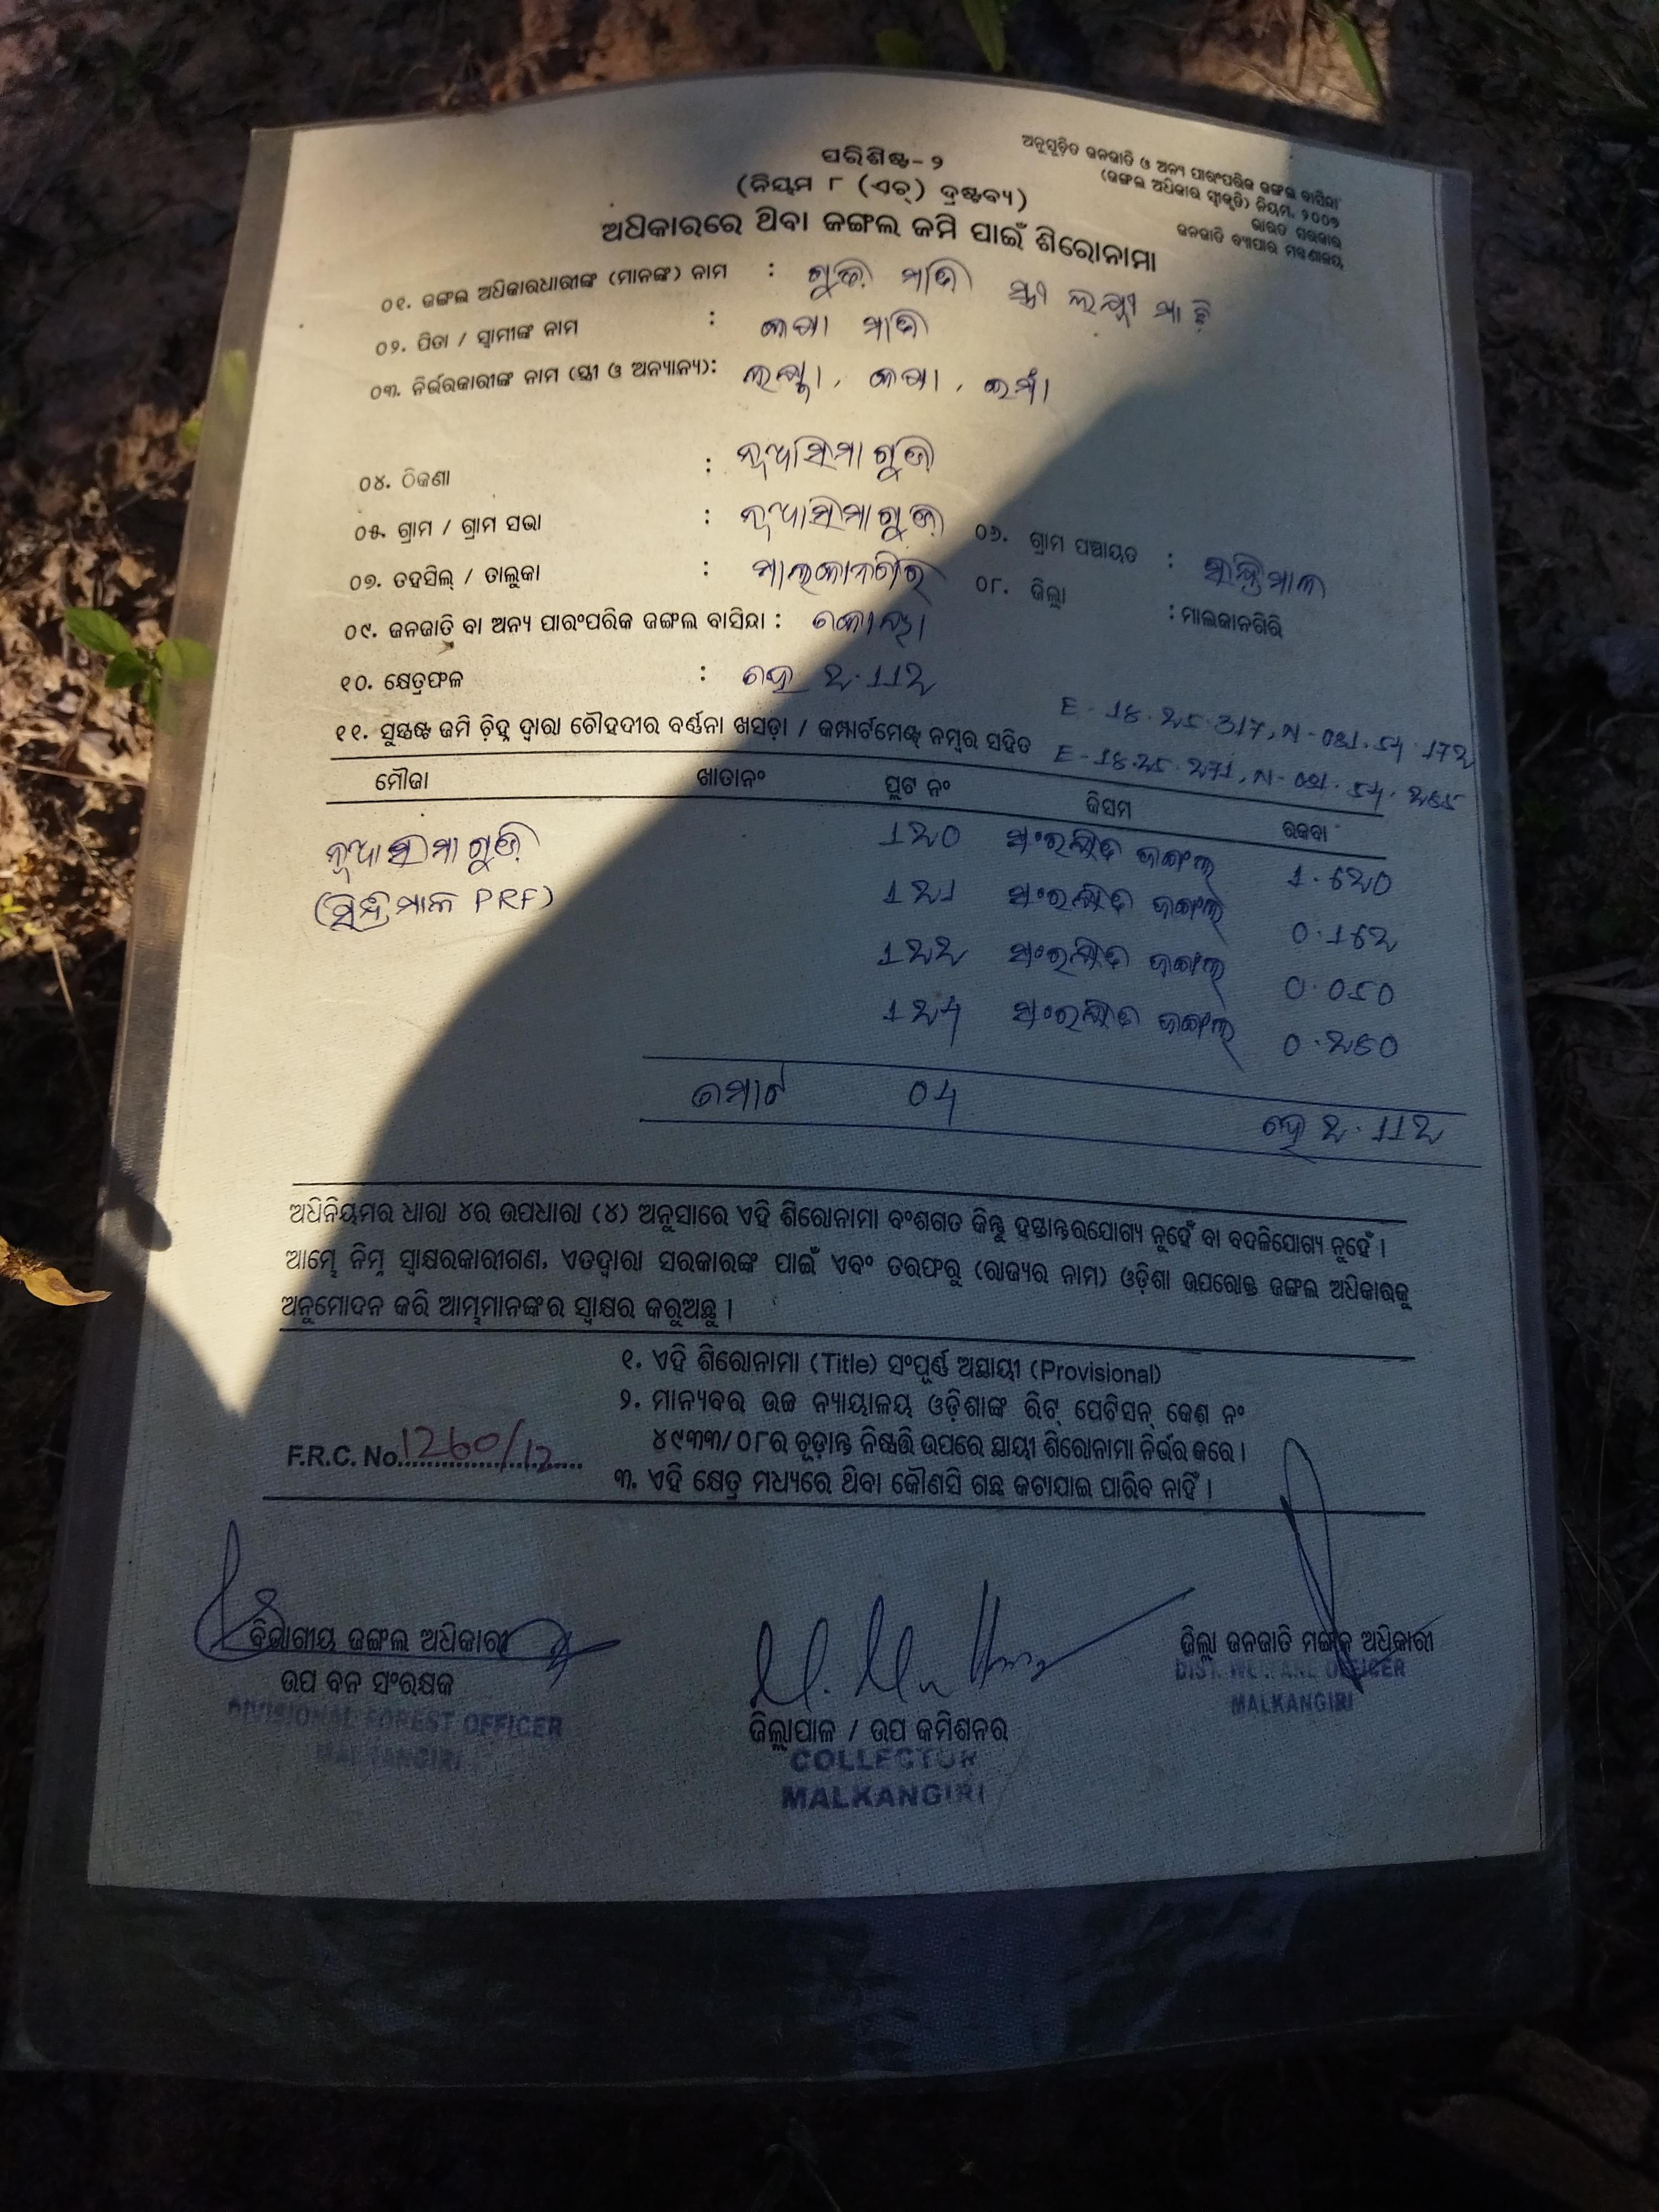 ଅନୁସୂଚିତ ଜନଜାତି ଓ ଅନ୍ୟ ପାରଂପରିକ ଜଙ୍ଗଲ ବାସିନ୍ଦା
(ଜଙ୍ଗଲ ଅଧିକାର ସ୍ୱୀକୃତି) ନିୟମ, ୨୦୦୭
ଭାରତ ସରକାର
ଜନଜାତି ବ୍ୟାପାର ମନ୍ତ୍ରଣାଳୟ
ପରିଶିଷ୍ଟ-୨
(ନିୟମ ୮ (ଏଚ୍) ଦ୍ରଷ୍ଟବ୍ୟ)
ଅଧିକାରରେ ଥିବା ଜଙ୍ଗଲ ଜମି ପାଇଁ ଶିରୋନାମା
୦୧. ଜଙ୍ଗଲ ଅଧିକାରଧାରୀଙ୍କ (ମାନଙ୍କ) ନାମ :
୦୨. ପିତା / ସ୍ୱାମୀଙ୍କ ନାମ :
୦୩. ନିର୍ଭରକାରୀଙ୍କ ନାମ (ସ୍ତ୍ରୀ ଓ ଅନ୍ୟାନ୍ୟ):
୦୪. ଠିକଣା : ନୂଆସିମାଗୁଡ଼ି
୦୫. ଗ୍ରାମ / ଗ୍ରାମ ସଭା : ନୂଆସିମାଗୁଡ଼ି ୦୬. ଗ୍ରାମ ପଞ୍ଚାୟତ :
୦୭. ତହସିଲ୍ / ତାଲୁକା : ମାଲକାନଗିରି ୦୮. ଜିଲ୍ଲା : ମାଲକାନଗିରି
୦୯. ଜନଜାତି ବା ଅନ୍ୟ ପାରଂପରିକ ଜଙ୍ଗଲ ବାସିନ୍ଦା : କୋୟା
୧୦. କ୍ଷେତ୍ରଫଳ : ହେ 2.112
୧୧. ସୁସ୍ପଷ୍ଟ ଜମି ଚିହ୍ନ ଦ୍ୱାରା ଚୌହଦୀର ବର୍ଣ୍ଣନା ଖସଡ଼ା / କମ୍ପାର୍ଟମେଣ୍ଟ ନମ୍ବର ସହିତ
ମୌଜା ଖାତାନଂ ପ୍ଲଟ ନଂ କିସମ ରକବା
ନୂଆସିମାଗୁଡ଼ି 120 ସଂରକ୍ଷିତ ଜଙ୍ଗଲ 1.620
PRF) 121 ସଂରକ୍ଷିତ ଜଙ୍ଗଲ 0.162
122 ସଂରକ୍ଷିତ ଜଙ୍ଗଲ 0.050
124 ସଂରକ୍ଷିତ ଜଙ୍ଗଲ 0.260
ମୋଟ 04 ହେ 2.112
ଅଧିନିୟମର ଧାରା ୪ର ଉପଧାରା (୪) ଅନୁସାରେ ଏହି ଶିରୋନାମା ବଂଶଗତ କିନ୍ତୁ ହସ୍ତାନ୍ତରଯୋଗ୍ୟ ନୁହେଁ ବା ବଦଳିଯୋଗ୍ୟ ନୁହେଁ ।
ଆମ୍ଭେ ନିମ୍ନ ସ୍ୱାକ୍ଷରକାରୀଗଣ, ଏତଦ୍ୱାରା ସରକାରଙ୍କ ପାଇଁ ଏବଂ ତରଫରୁ (ରାଜ୍ୟର ନାମ) ଓଡ଼ିଶା ଉପରୋକ୍ତ ଜଙ୍ଗଲ ଅଧିକାରକୁ
ଅନୁମୋଦନ କରି ଆମ୍ଭମାନଙ୍କର ସ୍ୱାକ୍ଷର କରୁଅଛୁ ।
୧. ଏହି ଶିରୋନାମା (Title) ସଂପୂର୍ଣ୍ଣ ଅସ୍ଥାୟୀ (Provisional)
୨. ମାନ୍ୟବର ଉଚ୍ଚ ନ୍ୟାୟାଳୟ ଓଡ଼ିଶାଙ୍କ ରିଟ୍ ପେଟିସନ୍ କେଶ୍ ନଂ
୪୯୩୩/୦୮ର ଚୂଡ଼ାନ୍ତ ନିଷ୍ପତ୍ତି ଉପରେ ସ୍ଥାୟୀ ଶିରୋନାମା ନିର୍ଭର କରେ ।
୩. ଏହି କ୍ଷେତ୍ର ମଧ୍ୟରେ ଥିବା କୌଣସି ଗଛ କଟାଯାଇ ପାରିବ ନାହିଁ ।
F.R.C. No. 1260/12
ବିଭାଗୀୟ ଜଙ୍ଗଲ ଅଧିକାରୀ
ଉପ ବନ ସଂରକ୍ଷକ
DIVISIONAL FOREST OFFICER
MALKANGIRI
ଜିଲ୍ଲାପାଳ / ଉପ କମିଶନର
COLLECTOR
MALKANGIRI
ଜିଲ୍ଲା ଜନଜାତି ମଙ୍ଗଳ ଅଧିକାରୀ
DIST. WELFARE OFFICER
MALKANGIRI